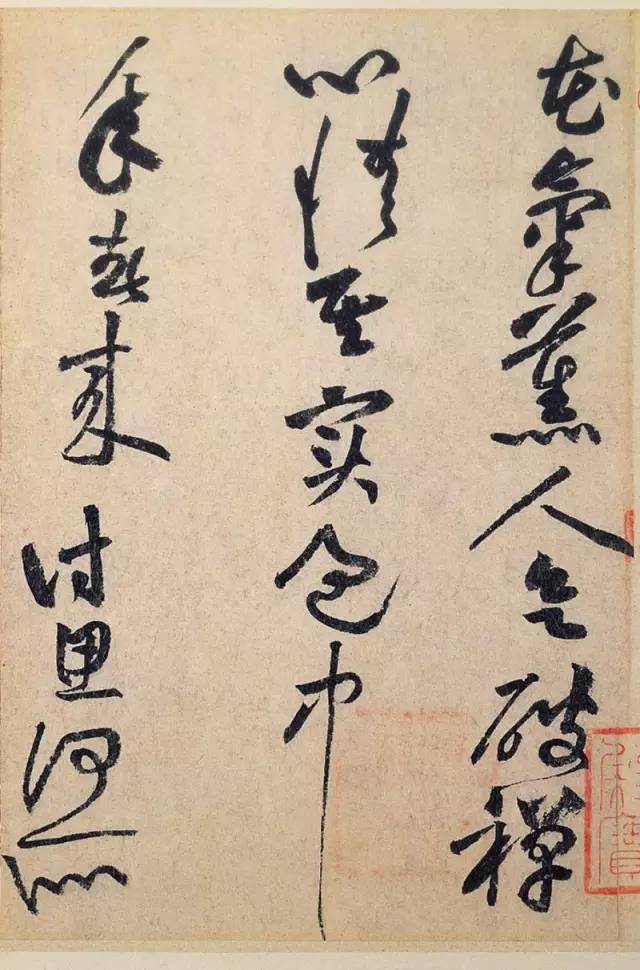 花氣薰人欲破禪
心情其實過中
年春來詩思何所